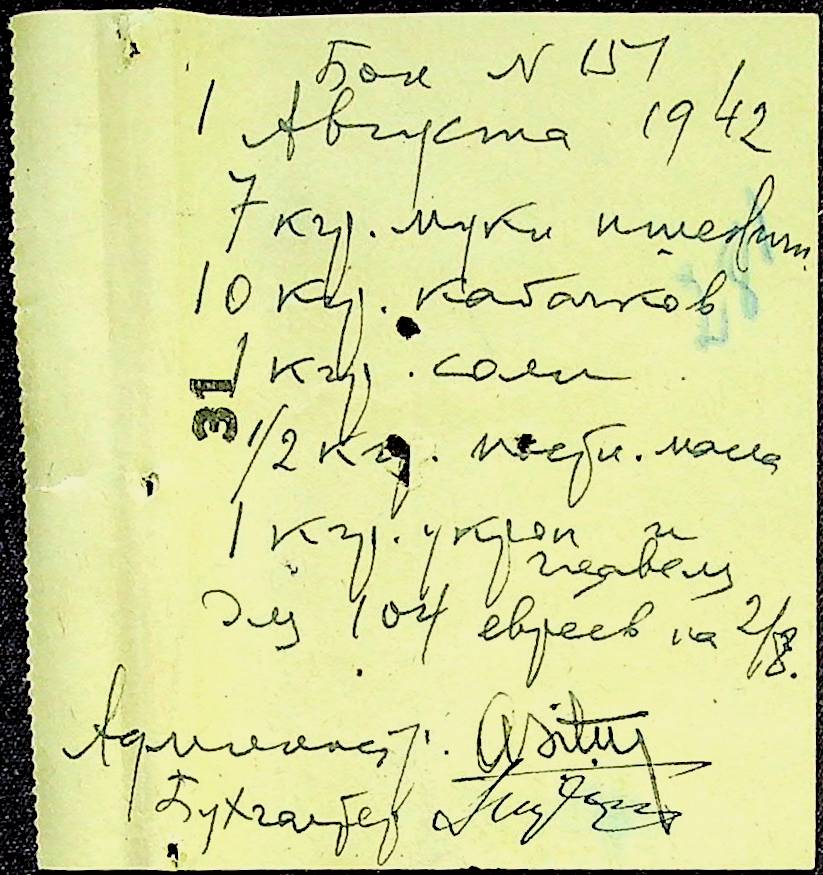 Бон N 151
1 Августа 1942
7 кгр. муки пшеничн.
10 кгр. кабачков
1 кгр. соли
1/2 кгр. постн. масла
1 кгр. укроп и
щавель
Для 104 евреев на 2/8.
Администр.
Бухгалтер
31